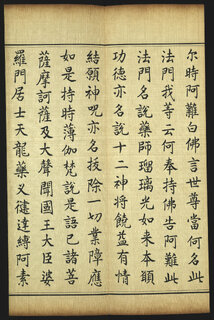 尔時阿難白佛言世尊當何名此
法門我等云何奉持佛告阿難此
法門名說藥師瑠璃光如来本願
功德亦名說十二神将饒益有情
結願神呪亦名拔除一切業障應
如是持時薄伽梵說是語已諸菩
薩摩訶薩及大聲聞國王大臣婆
羅門居士天龍藥叉健達縛阿素